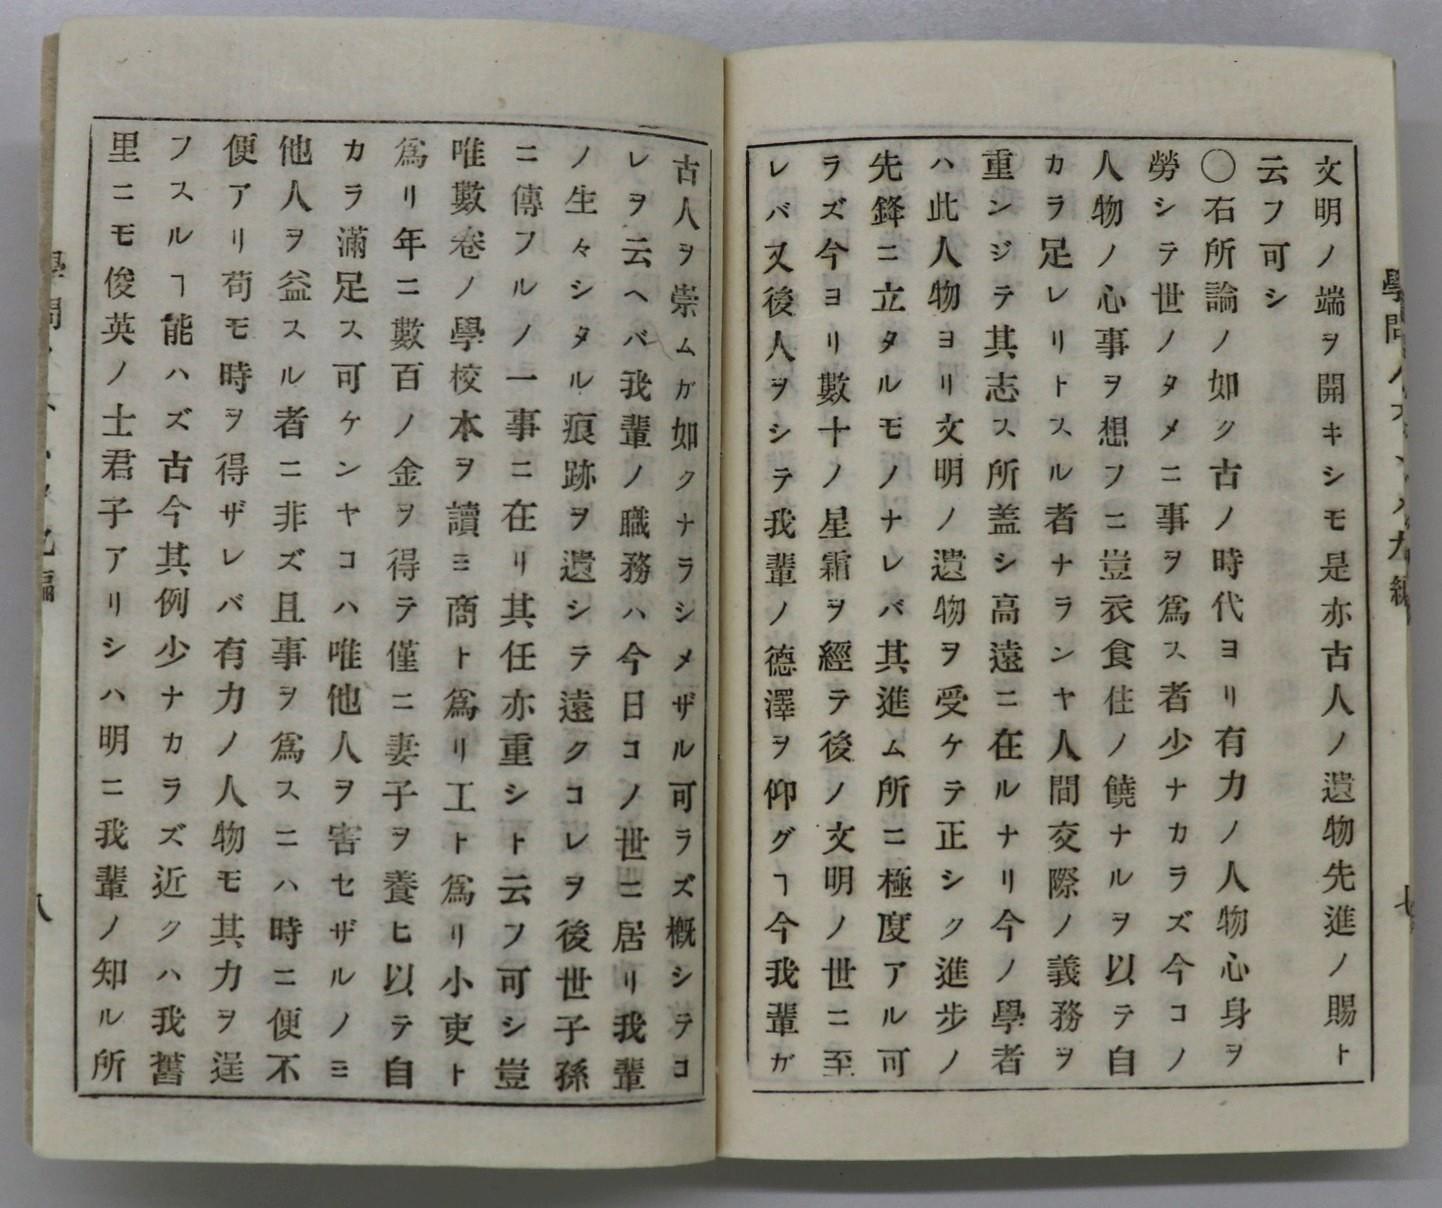 文明ノ端ヲ開キシモ是亦古人ノ遺物先進ノ賜ト
云フ可シ
〇右所論ノ如ク古ノ時代ヨリ有力ノ人物心身ヲ
勞シテ世ノタメニ事ヲ爲ス者少ナカラズ今コノ
人物ノ心事ヲ想フニ豈衣食住ノ饒ナルヲ以テ自
カラ足レリトスル者ナランヤ人間交際ノ義務ヲ
重シジテ其志ス所盖シ高遠ニ在ルナリ今ノ學者
ハ此人物ヨリ文明ノ遺物ヲ受ケテ正シク進步ノ
先鋒ニ立タルモノナレバ其進ム所ニ極度アル可
ラズ今ヨリ數十ノ星霜ヲ經テ後ノ文明ノ世ニ至
レバ又後人ヲシテ我輩ノ德澤ヲ仰グヿ今我輩ガ
七
古人ヲ崇ムガ如クナラシメザル可ラズ概シテコ
レヲ云ヘバ我輩ノ職務ハ今日コノ世ニ居リ我輩
ノ生々シタル痕跡ヲ遺シテ遠クコレヲ後世子孫
ニ傳フルノ一事ニ在リ其任亦重シト云フ可シ豈
唯數卷ノ學校本ヲ讀ミ商ト爲リ工ト爲リ小吏ト
爲リ年ニ數百ノ金ヲ得テ僅ニ妻子ヲ養ヒ以テ自
カラ滿足ス可ケンヤコハ唯他人ヲ害セザルノミ
他人ヲ益スル者ニ非ズ且事ヲ爲スニハ時ニ便不
便アリ苟モ時ヲ得ザレバ有力ノ人物モ其力ヲ逞
フスルヿ能ハズ古今其例少ナカラズ近クハ我舊
里ニモ俊英ノ士君子アリシハ明ニ我輩ノ知ル所
八